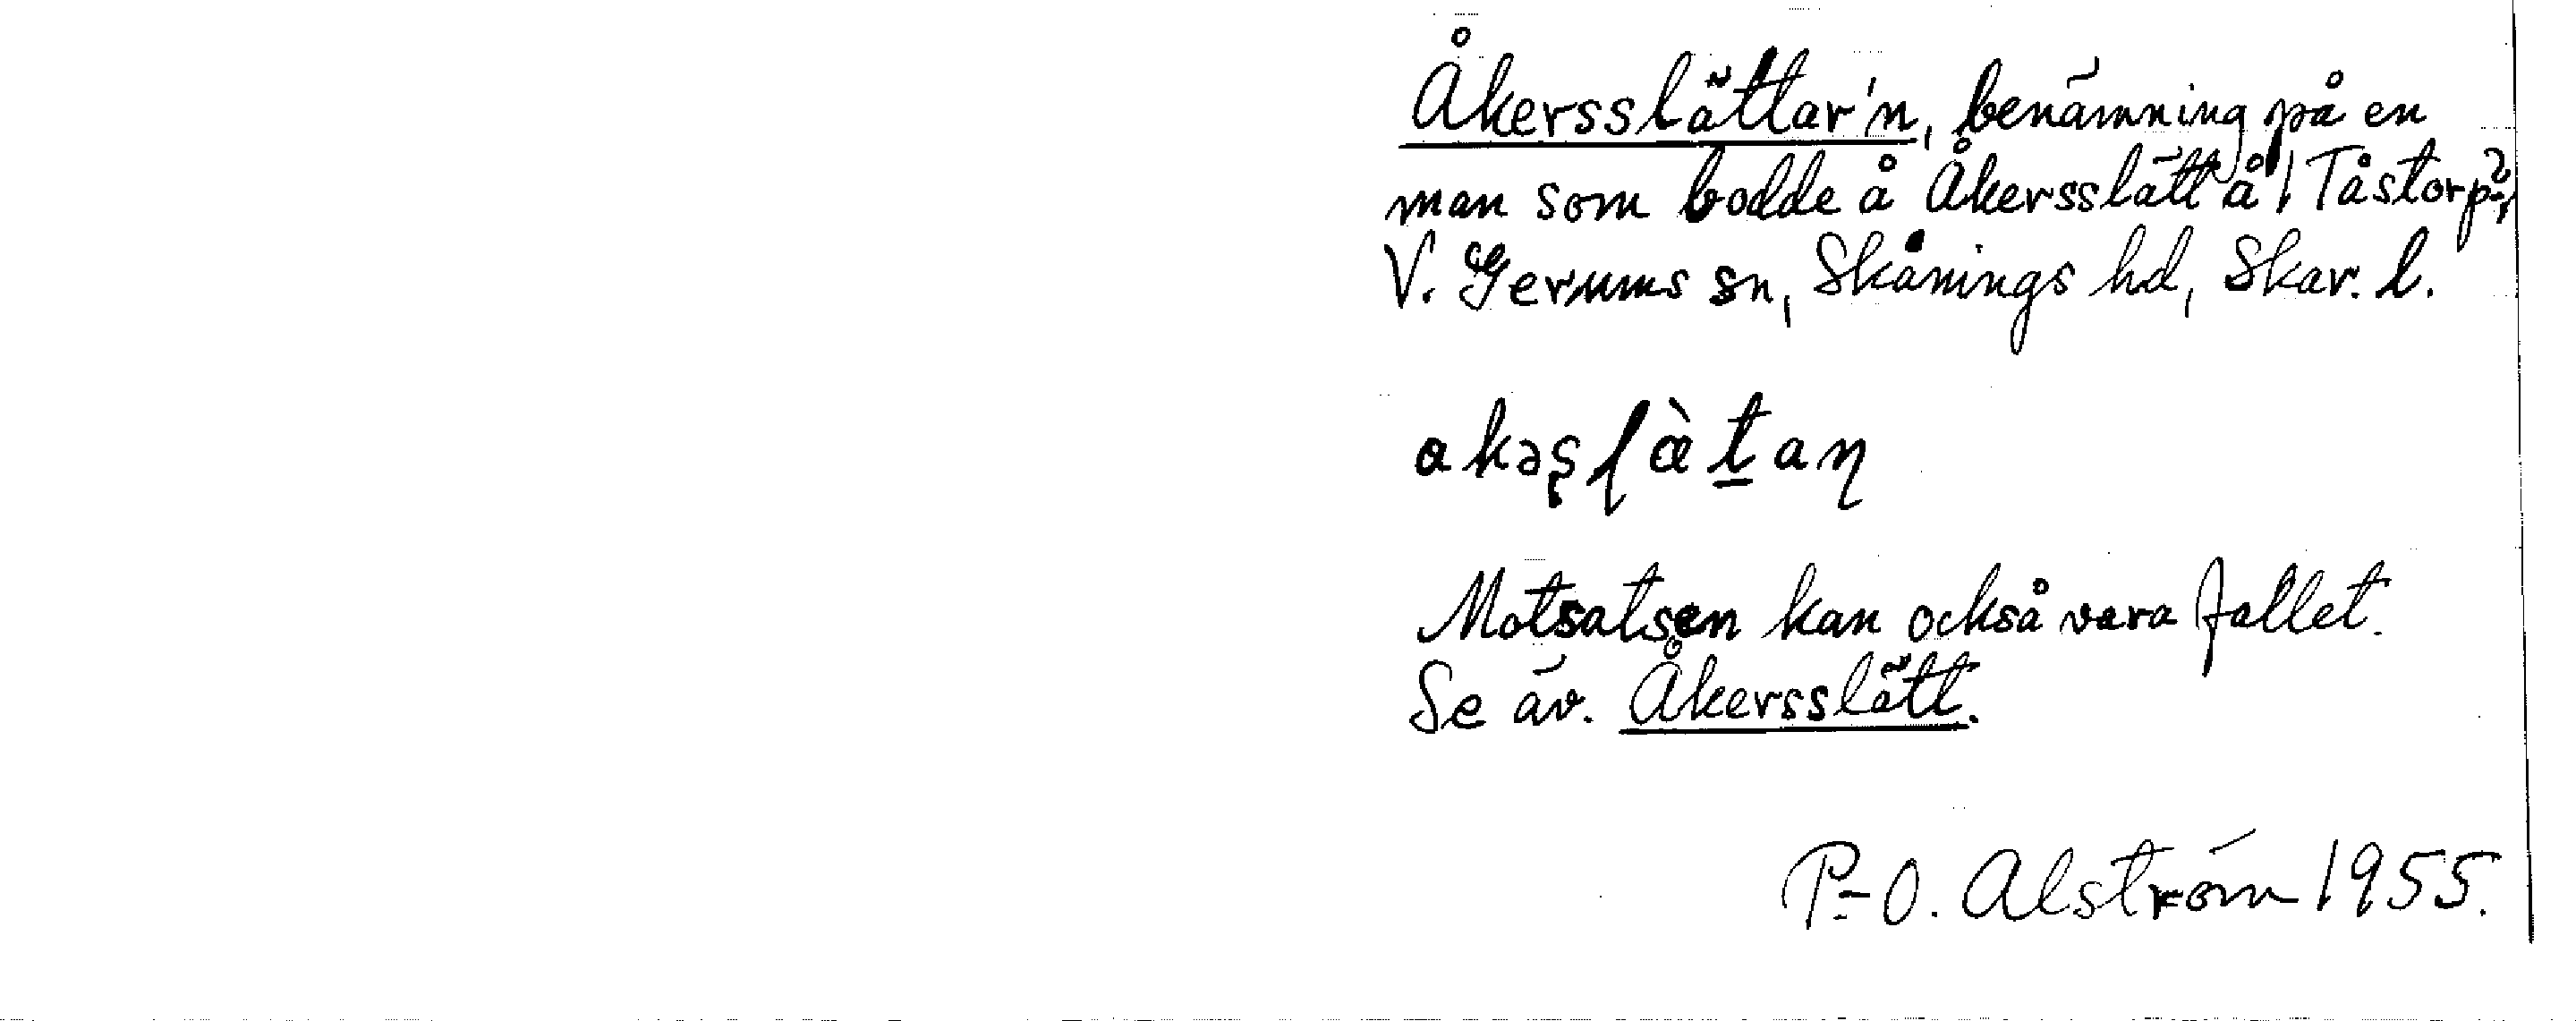 Åkersslättar'n, benämning på en
man som bodde å Åkersslätt å 1 Tåstorp?,
V. Gerums sn, Skånings hd, Skar. l.
Motsatsen kan också vara fallet.
Se äv. Åkersslätt.
P.-O. Alström 1955.